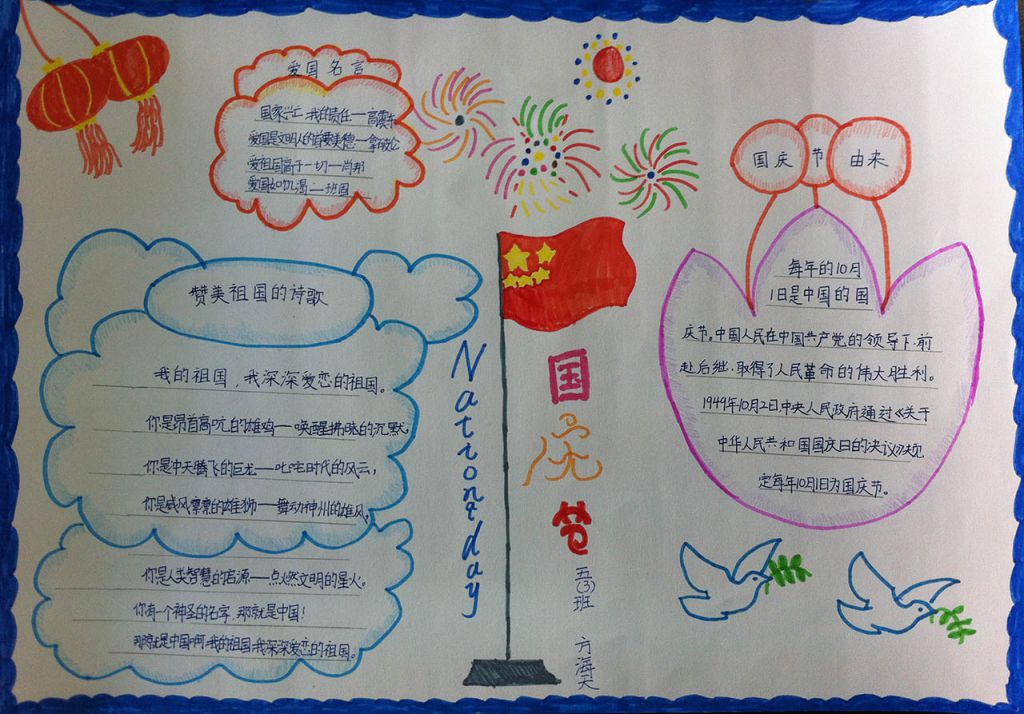 爱国名言
国家兴亡,我的责任—高震东
爱国是文明人的首要美德—拿破仑
爱祖国高于一切—肖邦
爱国如饥渴—班固
国庆节由来
每年的10月
1日是中国的国
庆节。中国人民在中国共产党的领导下,前
赴后继,取得了人民革命的伟大胜利。
1949年10月2日中央人民政府通过《关于
中华人民共和国国庆日的决议》规
定每年10月1日为国庆节。
赞美祖国的诗歌
我的祖国,我深深爱恋的祖国。
你是昂首高吭的雄鸡—唤醒拂晓的沉默,
你是中天腾飞的巨龙—叱咤时代的风云,
你是威风凛凛的雄狮—舞动神州的雄风,
你是人类智慧的启源—点燃文明的星火。
你有一个神圣的名字,那就是中国!
那就是中国啊,我的祖国,我深深爱恋的祖国。
National day
国庆节
五(3)班
方海天